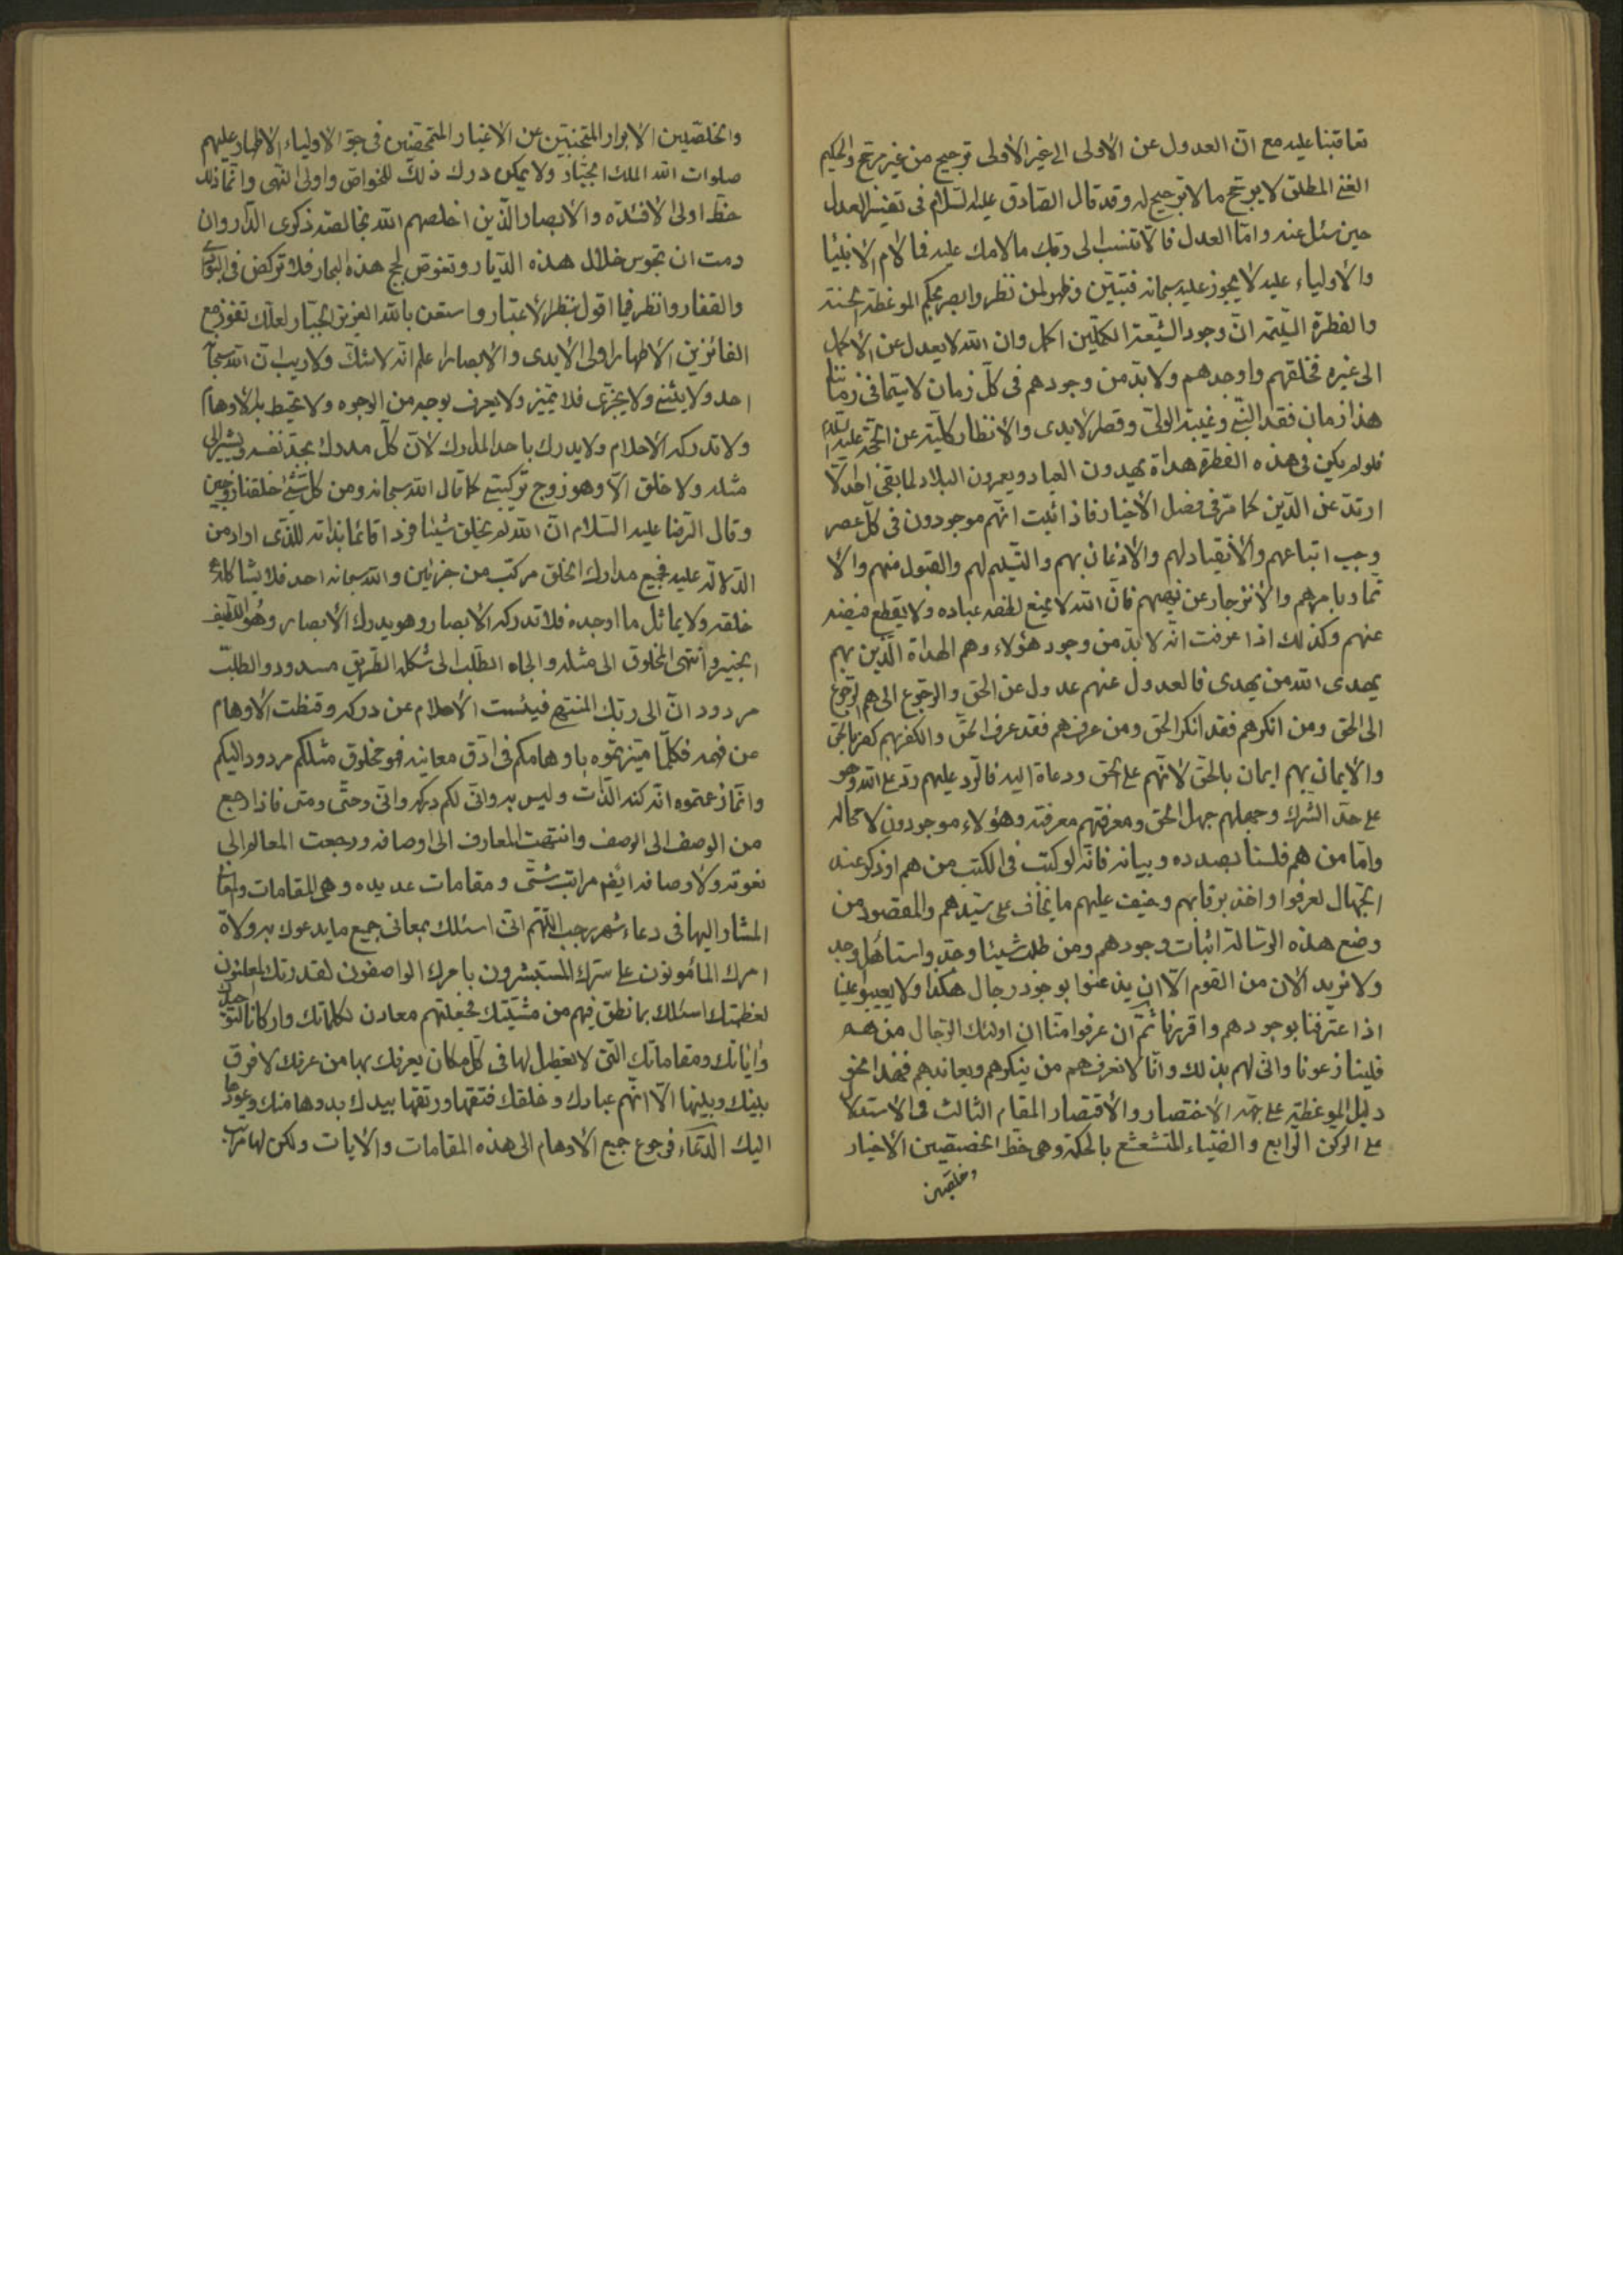 تعاقبنا عليه مع انّ العدول عن الاولى الى غير الاولى ترجيح من غير مرجح والحكيم
الغنى المطلق لا يرجح ما لا ترجيح له وقد قال الصّادق عليه السّلام فى تفسير العدل
حين سئل عنه وامّا العدل فالّا تنسب الى ربك ما لامك عليه فما لام الانبيا
والاولياء عليه لا يجوز عليه سبحانه فتبيّن وظهر لمن نظر وابصر بحكم الموعظة الحسنة
والفطرة السّليمة انّ وجود الشّيعة الكمّلين اكمل وان الله لا يعدل عن الاكمل
الى غيره فخلقهم واوجدهم ولا بدّ من وجودهم فى كلّ زمان لا سيّما فى زماننا
هذا زمان فقد النّبى وغيبة الولىّ وقصر الايدى والانظار كلّية عن الحجّة عليه السّلام
فلو لم يكن فى هذه الفطرة هداة يهدون العباد ويعمرون البلاد لما بقى احد الّا
ارتدّ عن الدّين كما مرّ فى فصل الاخبار فاذا ثبت انّهم موجودون فى كلّ عصر
وجب اتباعهم والانقياد لهم والاذعان بهم والتّسليم لهم والقبول منهم والا
تمار بامرهم والانزجار عن نهيهم فانّ الله لا يمنع لطفه عباده ولا يقطع فيضه
عنهم وكذلك اذا عرفت انّه لا بدّ من وجود هؤلاء وهم الهداة الّذين بهم
يهدى الله من يهدى فالعدول عنهم عدول عن الحق والرّجوع الى هم الرّجوع
الى الحق ومن انكرهم فقد انكر الحق ومن عرفهم فقد عرف الحقّ والكفر بهم كفر بالحق
والايمان بهم ايمان بالحقّ لانّهم على الحق ودعاة اليه فالرّد عليهم ردّ على الله وهو
على حدّ الشّرك وجهلهم جهل الحق ومعرفتهم معرفته وهؤلاء موجودون لا محالة
وامّا من هم فلسنا بصدده وبيانه فانّه لو كتب فى الكتب من هم اوذكر عند
الجهّال لعرفوا واخذ برقابهم وخيف عليهم ما يخاف على سيّدهم والمقصود من
وضع هذه الرّسالة اثبات وجودهم ومن طلب شيئا وجدّ واستاهل وجد
ولا نريد الان من القوم الّا ان يذعنوا بوجود رجال هكذا ولا يعيبوا علينا
اذا عترفنا بوجودهم واقررنا ثمّ ان عرفوا منّا ان اولئك الرّجال من هم
فلينازعونا وانّى لهم بذلك وانّا لا نعرفهم من ينكرهم ويعاندهم فهذا محق
دليل الموعظة على جهة الاختصار والاقتصار المقام الثالث فى الاستدلال
على الركن الرّابع والضّياء المتشعشع بالحكمة وهى حظ الخصيصين الاخيار
وخلصين
والخلصّيين الابرار المتجنبّين عن الاغيار المتمحّضين فى حبّ الاولياء الاطهار عليهم
صلوات الله الملك الجبّار ولا يمكن درك ذلك للخواصّ واولى النّهى وانّما ذلك
حظّ اولى الافئدة والابصار الّذين اخلصهم الله بخالصة ذكرى الدّار وان
رمت ان تجوس خلال هذه الدّيار وتغوص لجج هذه البحار فلا تركض فى البرارى
والقفار وانظر فيما اقول بنظر الاعتبار واستعن بالله العزيز الجبّار لعلّك تفوز مع
الفائزين الاطهار اولى الايدى والابصار اعلم انّه لا شكّ ولا ريب انّ الله سبحانه
احد ولا يثنى ولا يجزّى فلا يتميّز ولا يعرف بوجه من الوجوه ولا تحيط به الاوهام
ولا تدركه الاحلام ولا يدرك باحد المدارك لانّ كلّ مدرك يحدّ نفسه ويشير الى
مثله ولا خلق الّا وهو زوج تركيبى كما قال الله سبحانه ومن كلّ شئ خلقنا زوجين
وقال الرّضا عليه السّلام انّ الله لم يخلق شيئا فردا قائما بذاته للذّى اراد من
الدّلالة عليه فجميع مدارك الخلق مركّب من جزئين والله سبحانه احد فلا يشاكله
خلقه ولا يماثل ما اوجده فلا تدركه الابصار وهو يدرك الابصار وهو اللّطيف
الخبير وانتهى المخلوق الى مثله والجاه الطّلب الى شكله الطّريق مسدود والطلب
مردود انّ الى ربّك المنتهى فيئست الاحلام عن دركه وقنطت الاوهام
عن فهمه فكلّما ميّزتموه باوهامكم فى ادّق معانيه فهو مخلوق مثلكم مردود اليكم
وانّما زعمتموه انّه كنه الذّات وليس به وانّى لكم دركه وانّى وحتّى ومتى فاذا رجع
من الوصف الى الوصف وانتهت المعارف الى اوصافه ورجعت المعالم الى
نعوته ولاوصافه ايضا مراتب شتّى ومقامات عديده وهى المقامات
المشار اليها فى دعاء شهر رجب اللّهمّ انّى اسئلك بمعانى جميع ما يدعوك به ولاة
امرك المامونون على سترك المستبشرون بامرك الواصفون لقدرتك المعلنون
لعظمتك اسئلك بما نطق فيهم من مشيّتك فجعلتهم معادن لكلماتك واركانا لتوحيدك
واياتك ومقاماتك الّتى لا تعطيل لها فى كلّ مكان يعرفك بها من عرفك لا فرق
بينك وبينها الّا انّهم عبادك وخلقك فتقها ورتقها بيدك بدوها منك وعودها
اليك الدّعاء فرجوع جميع الاوهام الى هذه المقامات والايات ولكن لها مراتب